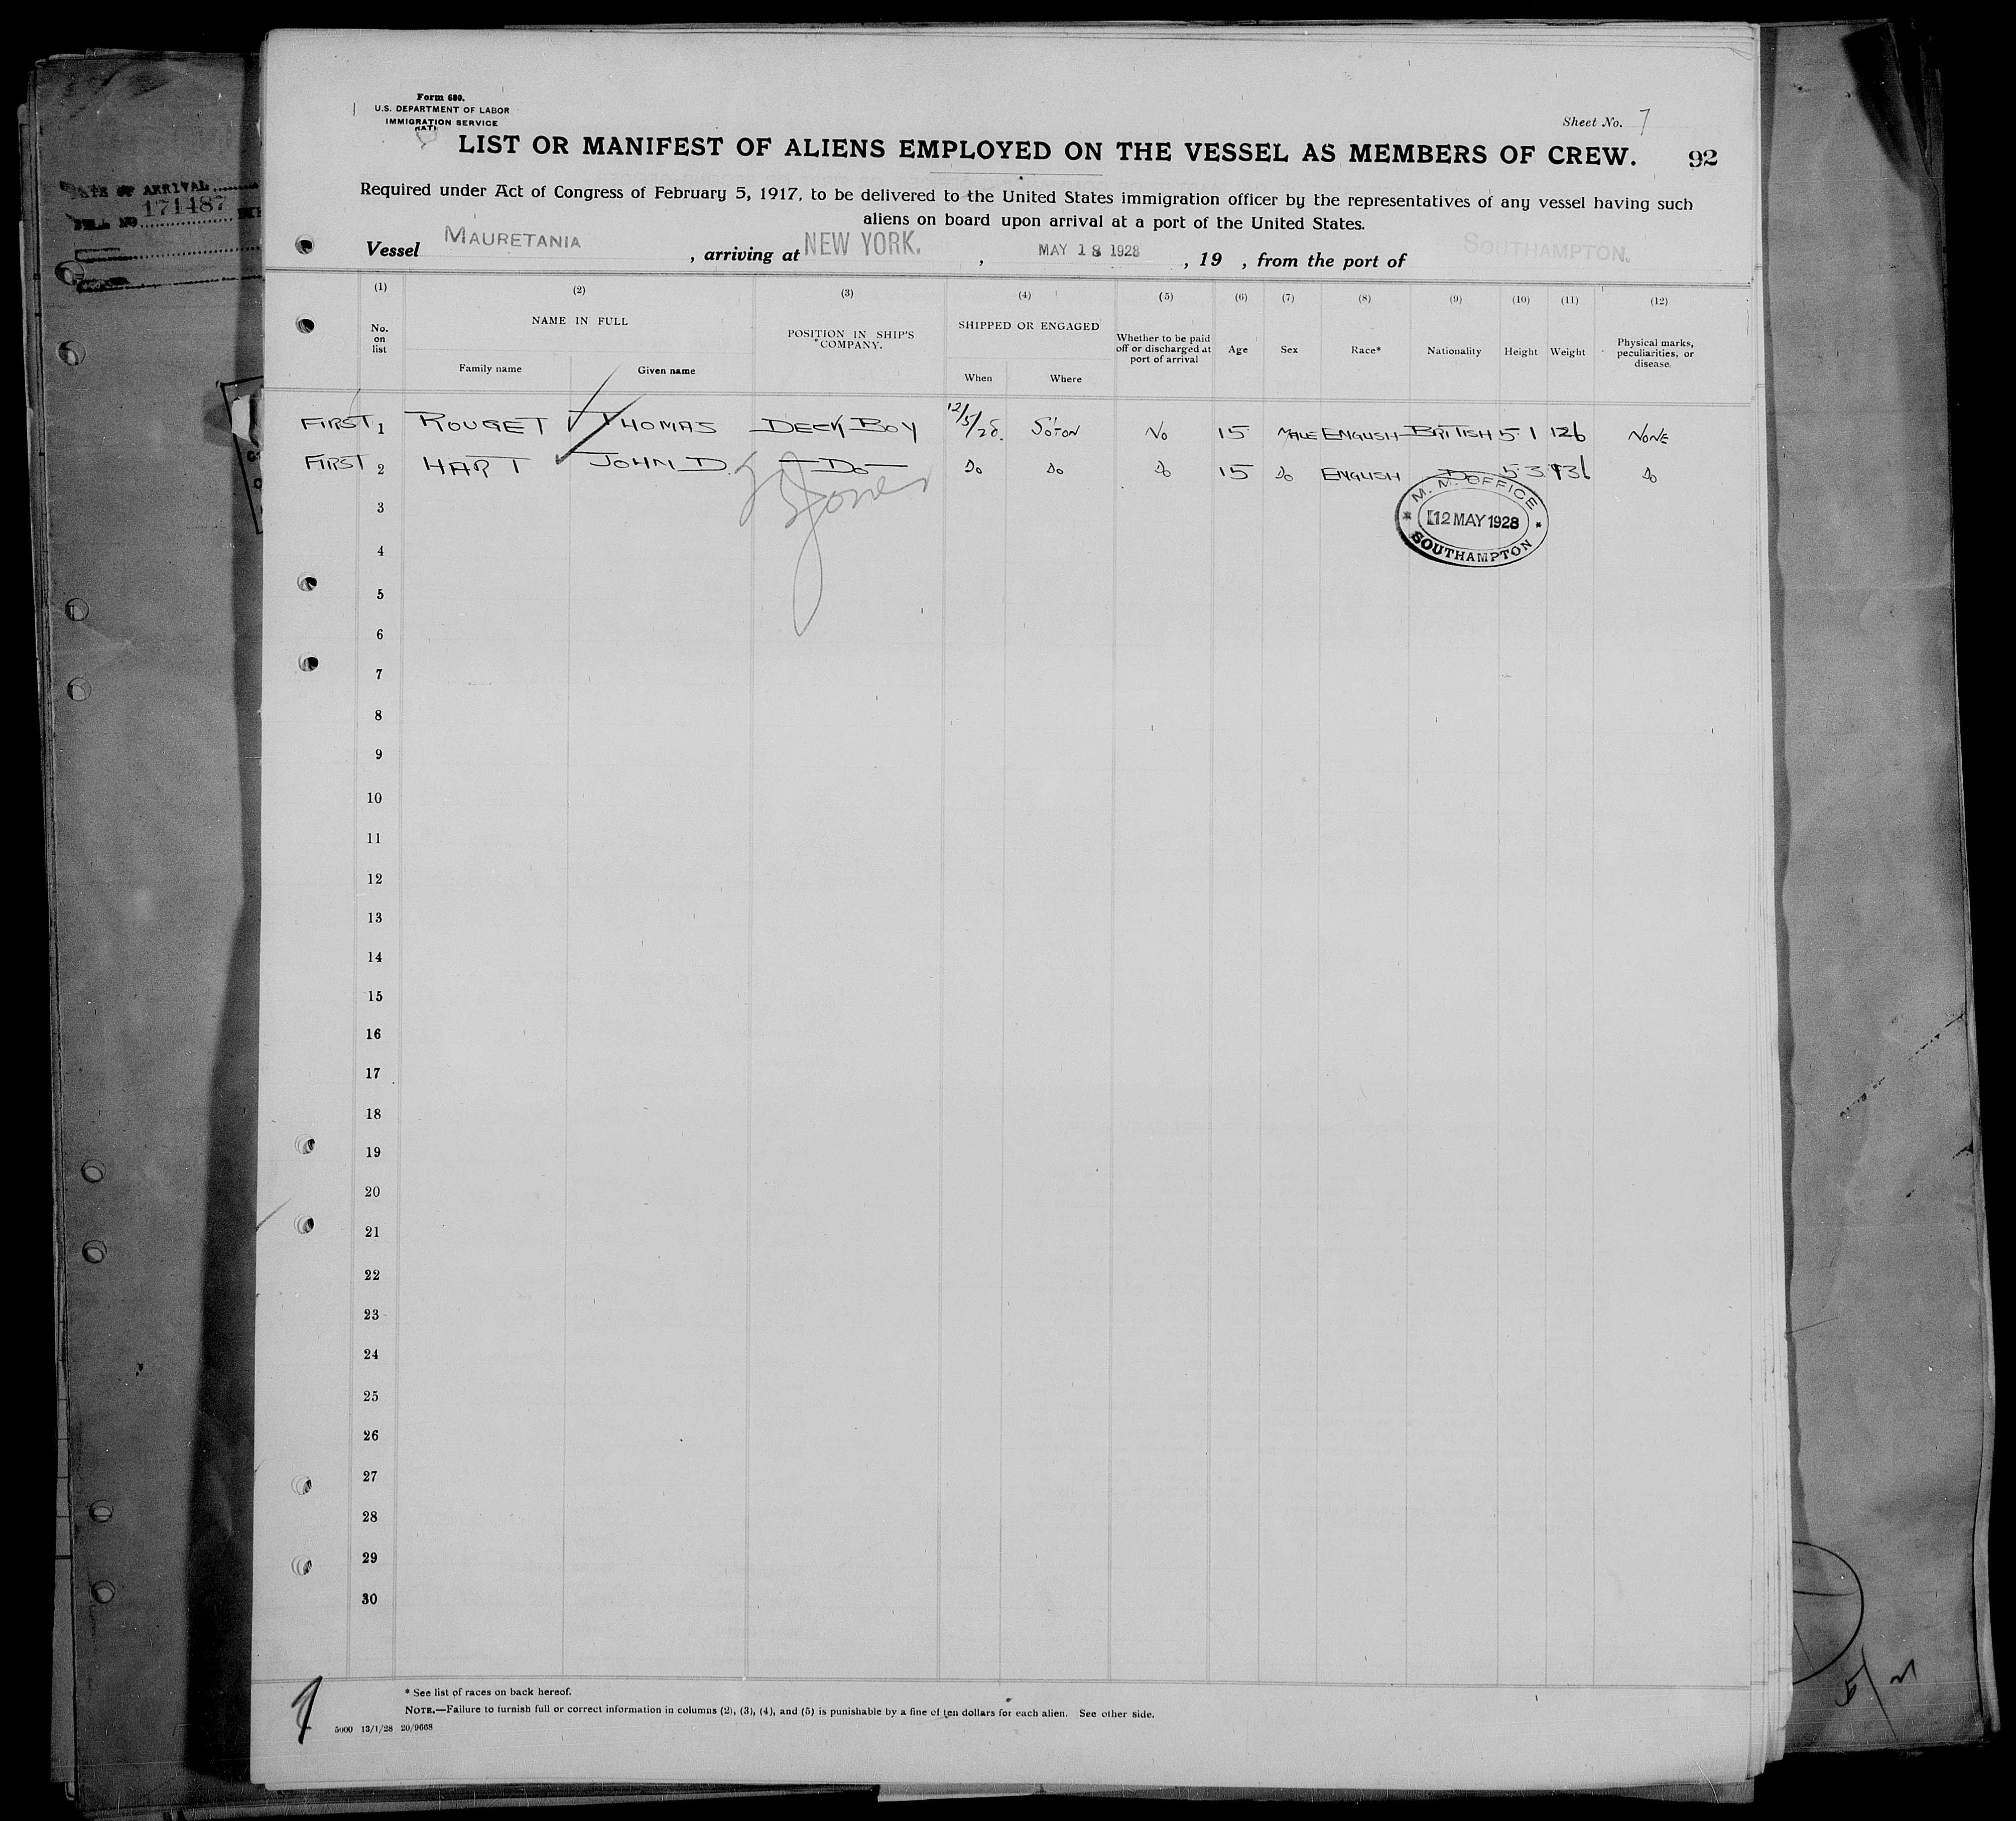 Form 680.
U.S. DEPARTMENT OF LABOR
IMMIGRATION SERVICE
Sheet No. 7
LIST OR MANIFEST OF ALIENS EMPLOYED ON THE VESSEL AS MEMBERS OF CREW.
92
Required under Act of Congress of February 5, 1917, to be delivered to the United States immigration officer by the representatives of any vessel having such
aliens on board upon arrival at a port of the United States.
Vessel MAURETANIA, arriving at NEW YORK., MAY 18 1928, 19 , from the port of SOUTHAMPTON.
DATE OF ARRIVAL
171487
(1) (2) (3) (4) (5) (6) (7) (8) (9) (10) (11) (12)
No. on list
NAME IN FULL
Family name Given name
POSITION IN SHIP'S COMPANY.
SHIPPED OR ENGAGED
When Where
Whether to be paid off or discharged at port of arrival
Age Sex Race* Nationality Height Weight
Physical marks, peculiarities, or disease.
FIRST 1 ROUGET THOMAS DECK BOY 12/5/28. S'OTON NO 15 MALE ENGLISH BRITISH 5-1 126 NONE
FIRST 2 HART JOHN D. DO DO DO DO 15 DO ENGLISH DO 5-3 136 DO
Jones
M. M. OFFICE
12 MAY 1928
SOUTHAMPTON
3
4
5
6
7
8
9
10
11
12
13
14
15
16
17
18
19
20
21
22
23
24
25
26
27
28
29
30
* See list of races on back hereof.
NOTE.—Failure to furnish full or correct information in columns (2), (3), (4), and (5) is punishable by a fine of ten dollars for each alien. See other side.
5000 13/1/28 20/9668